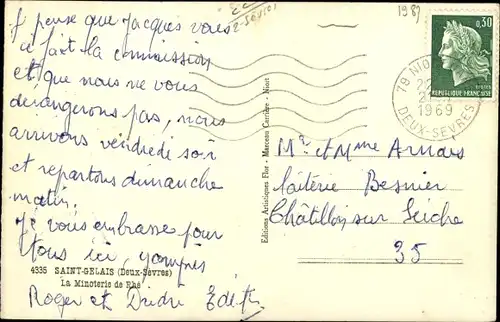 Je pense que Jacques vous
a fait la commission
et que nous ne vous
dérangerons pas, nous
arrivons vendredi soir
et repartons dimanche
matin.
Je vous embrasse pour
tous ici, y compris
Roger et Dédré Edith
4335 SAINT-GELAIS (Deux-Sèvres)
La Minoterie de Rhé
Editions Artistiques Flor - Marceau Carrière - Niort
1987
0,30
REPUBLIQUE FRANÇAISE
79 NIO
1969
DEUX-SEVRES
Mr et Mme Arnais
laiterie Besnier
Châtillon sur Seiche
35